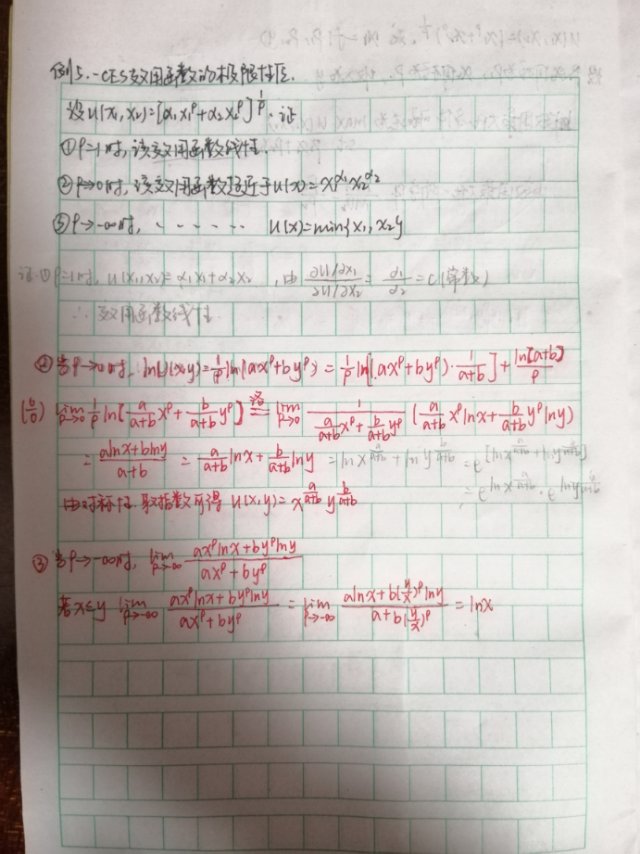 例5.-CES效用函数的极限性质.
设u(x₁,x₂)=[α₁x₁^ρ+α₂x₂^ρ]^{1/ρ}.证
①ρ=1时,该效用函数线性.
②ρ→0时,该效用函数趋近于u(x)=x₁^{α₁}x₂^{α₂}
③ρ→-∞时, ‥‥‥ u(x)=min{x₁,x₂}
证:①ρ=1时, u(x₁,x₂)=α₁x₁+α₂x₂ ,由 (∂u/∂x₁)/(∂u/∂x₂)=α₁/α₂=c(常数)
∴效用函数线性
②当ρ→0时, lnu(x,y)=1/ρ ln(ax^ρ+by^ρ)=1/ρ ln[(ax^ρ+by^ρ)·1/(a+b)]+ln[a+b]/ρ
(0/0) lim_{ρ→0} 1/ρ ln[a/(a+b) x^ρ+b/(a+b) y^ρ] 洛= lim_{ρ→0} 1/(a/(a+b) x^ρ+b/(a+b) y^ρ) (a/(a+b) x^ρ lnx+b/(a+b) y^ρ lny)
=(alnx+blny)/(a+b) = a/(a+b) lnx+b/(a+b) lny =lnx^{a/(a+b)}+lny^{b/(a+b)}
由对称性.取指数可得 u(x,y)=x^{a/(a+b)} y^{b/(a+b)}
③当ρ→-∞时, lim_{ρ→-∞} (ax^ρ lnx+by^ρ lny)/(ax^ρ+by^ρ)
若x≤y lim_{ρ→-∞} (ax^ρ lnx+by^ρ lny)/(ax^ρ+by^ρ) = lim_{ρ→-∞} (alnx+b(y/x)^ρ lny)/(a+b(y/x)^ρ) =lnx